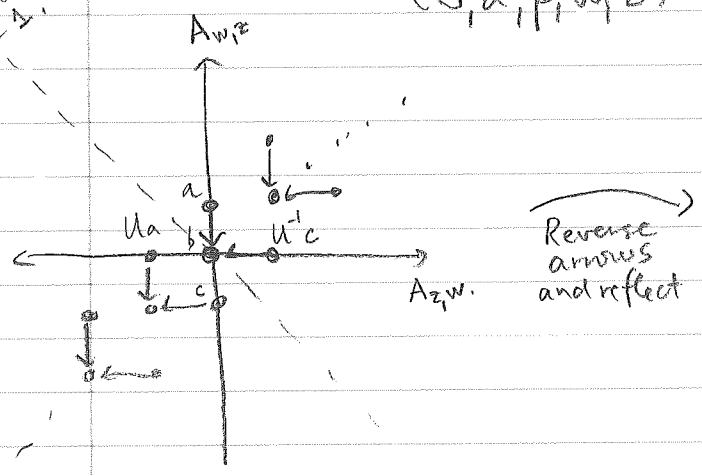 1.
(Σ, α, β, w, z)
A_{w,z}
a
Ua
b
U^{-1}c
c
A_{z,w}.
Reverse
arrows
and reflect